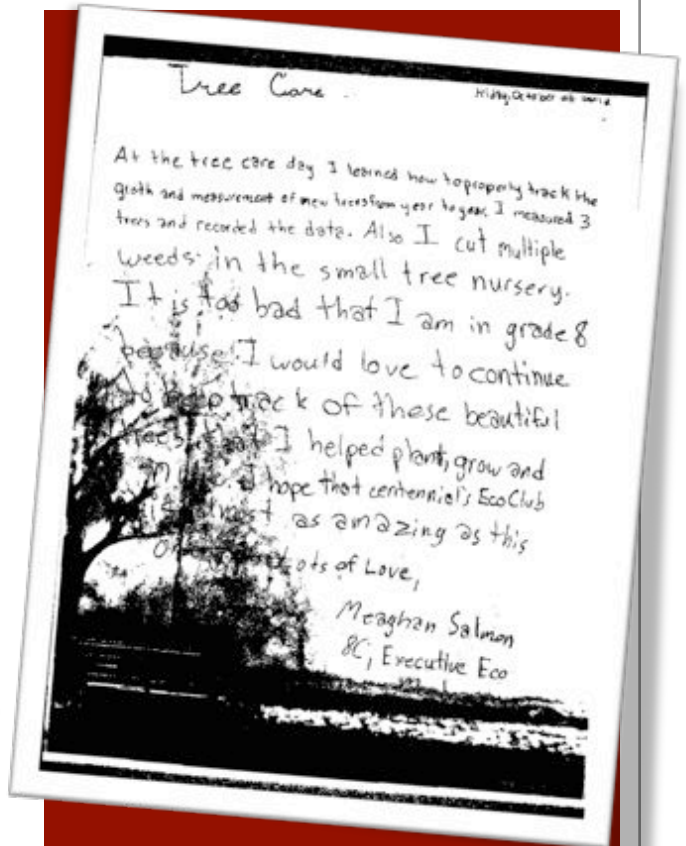 Tree Care.
Friday, October
At the tree care day I learned how to properly track the
groth and measurement of new trees from year to year. I measured 3
trees and recorded the data. Also I cut multiple
weeds in the small tree nursery.
It is too bad that I am in grade 8
because I would love to continue
keep track of these beautiful
trees that I helped plant, grow and
I hope that centennial's EcoClub
is almost as amazing as this
Lots of Love,
Meaghan Salmon
8C, Executive Eco